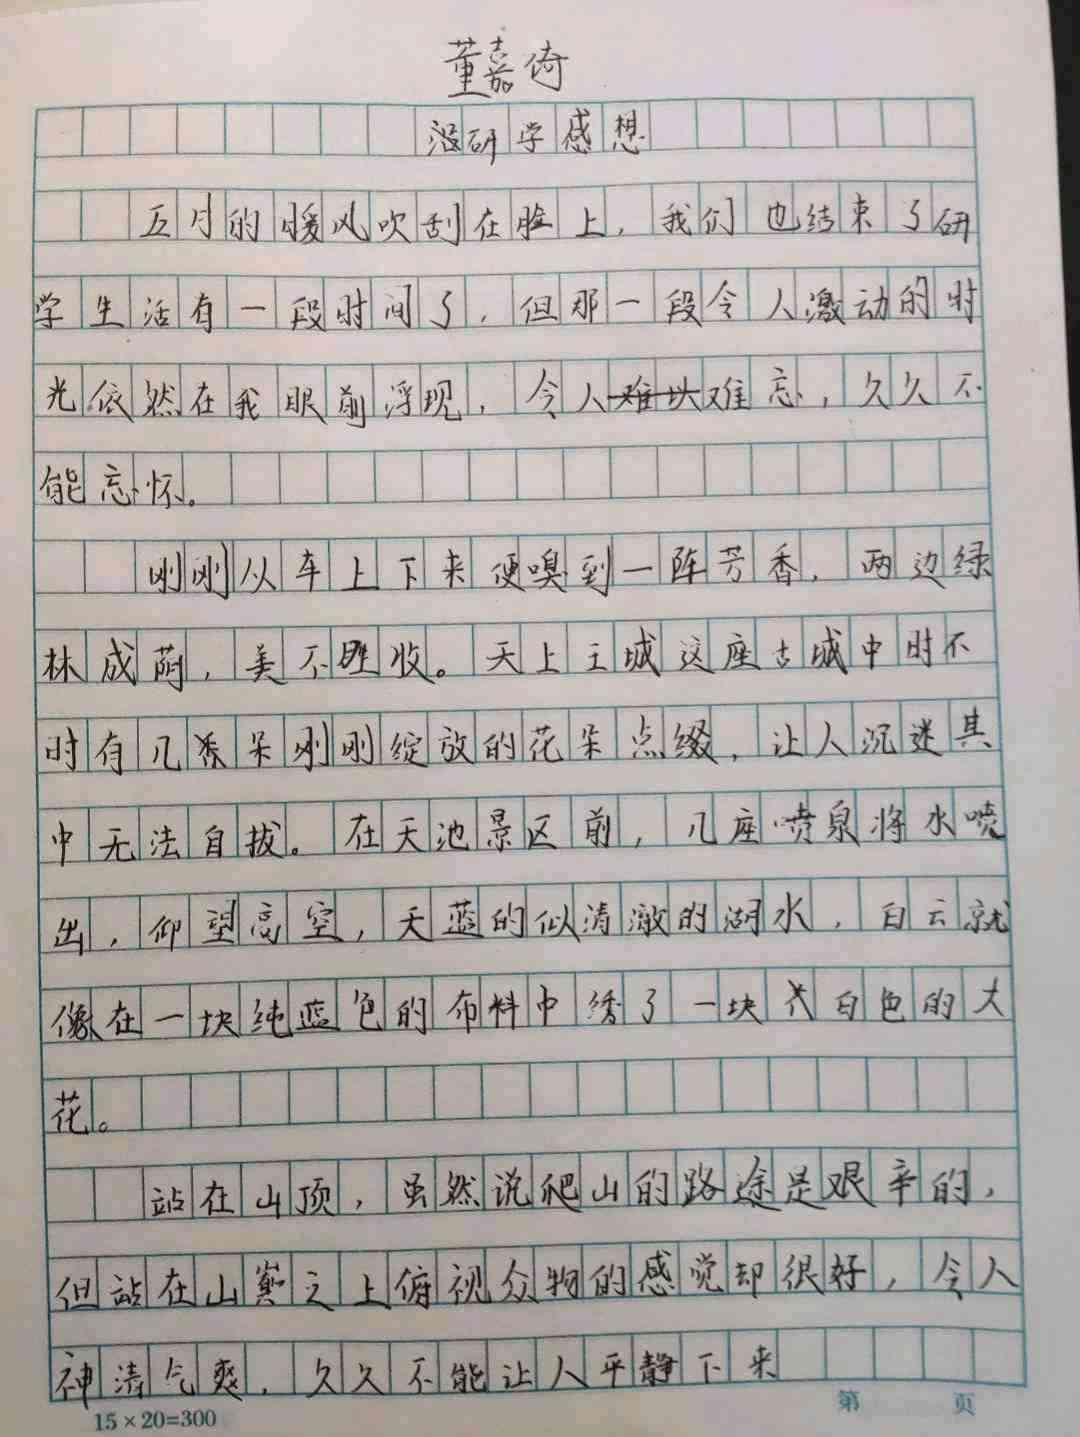 董嘉倚
研学感想
五月的暖风吹刮在脸上,我们也结束了研
学生活有一段时间了,但那一段令人激动的时
光依然在我眼前浮现,令人难忘,久久不
能忘怀。
刚刚从车上下来便嗅到一阵芳香,两边绿
林成荫,美不胜收。天上王城这座古城中时不
时有几朵刚刚绽放的花朵点缀,让人沉迷其
中无法自拔。在天池景区前,几座喷泉将水喷
出,仰望高空,天蓝的似清澈的湖水,白云就
像在一块纯蓝色的布料中绣了一块大白色的大
花。
站在山顶,虽然说爬山的路途是艰辛的,
但站在山巅之上俯视众物的感觉却很好,令人
神清气爽,久久不能让人平静下来
15×20=300
第 页